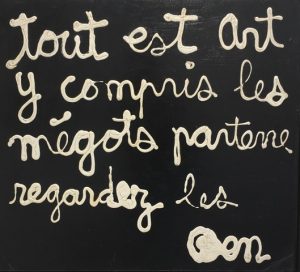 tout est art
y compris les
mégots parterre
regardez les
Ben